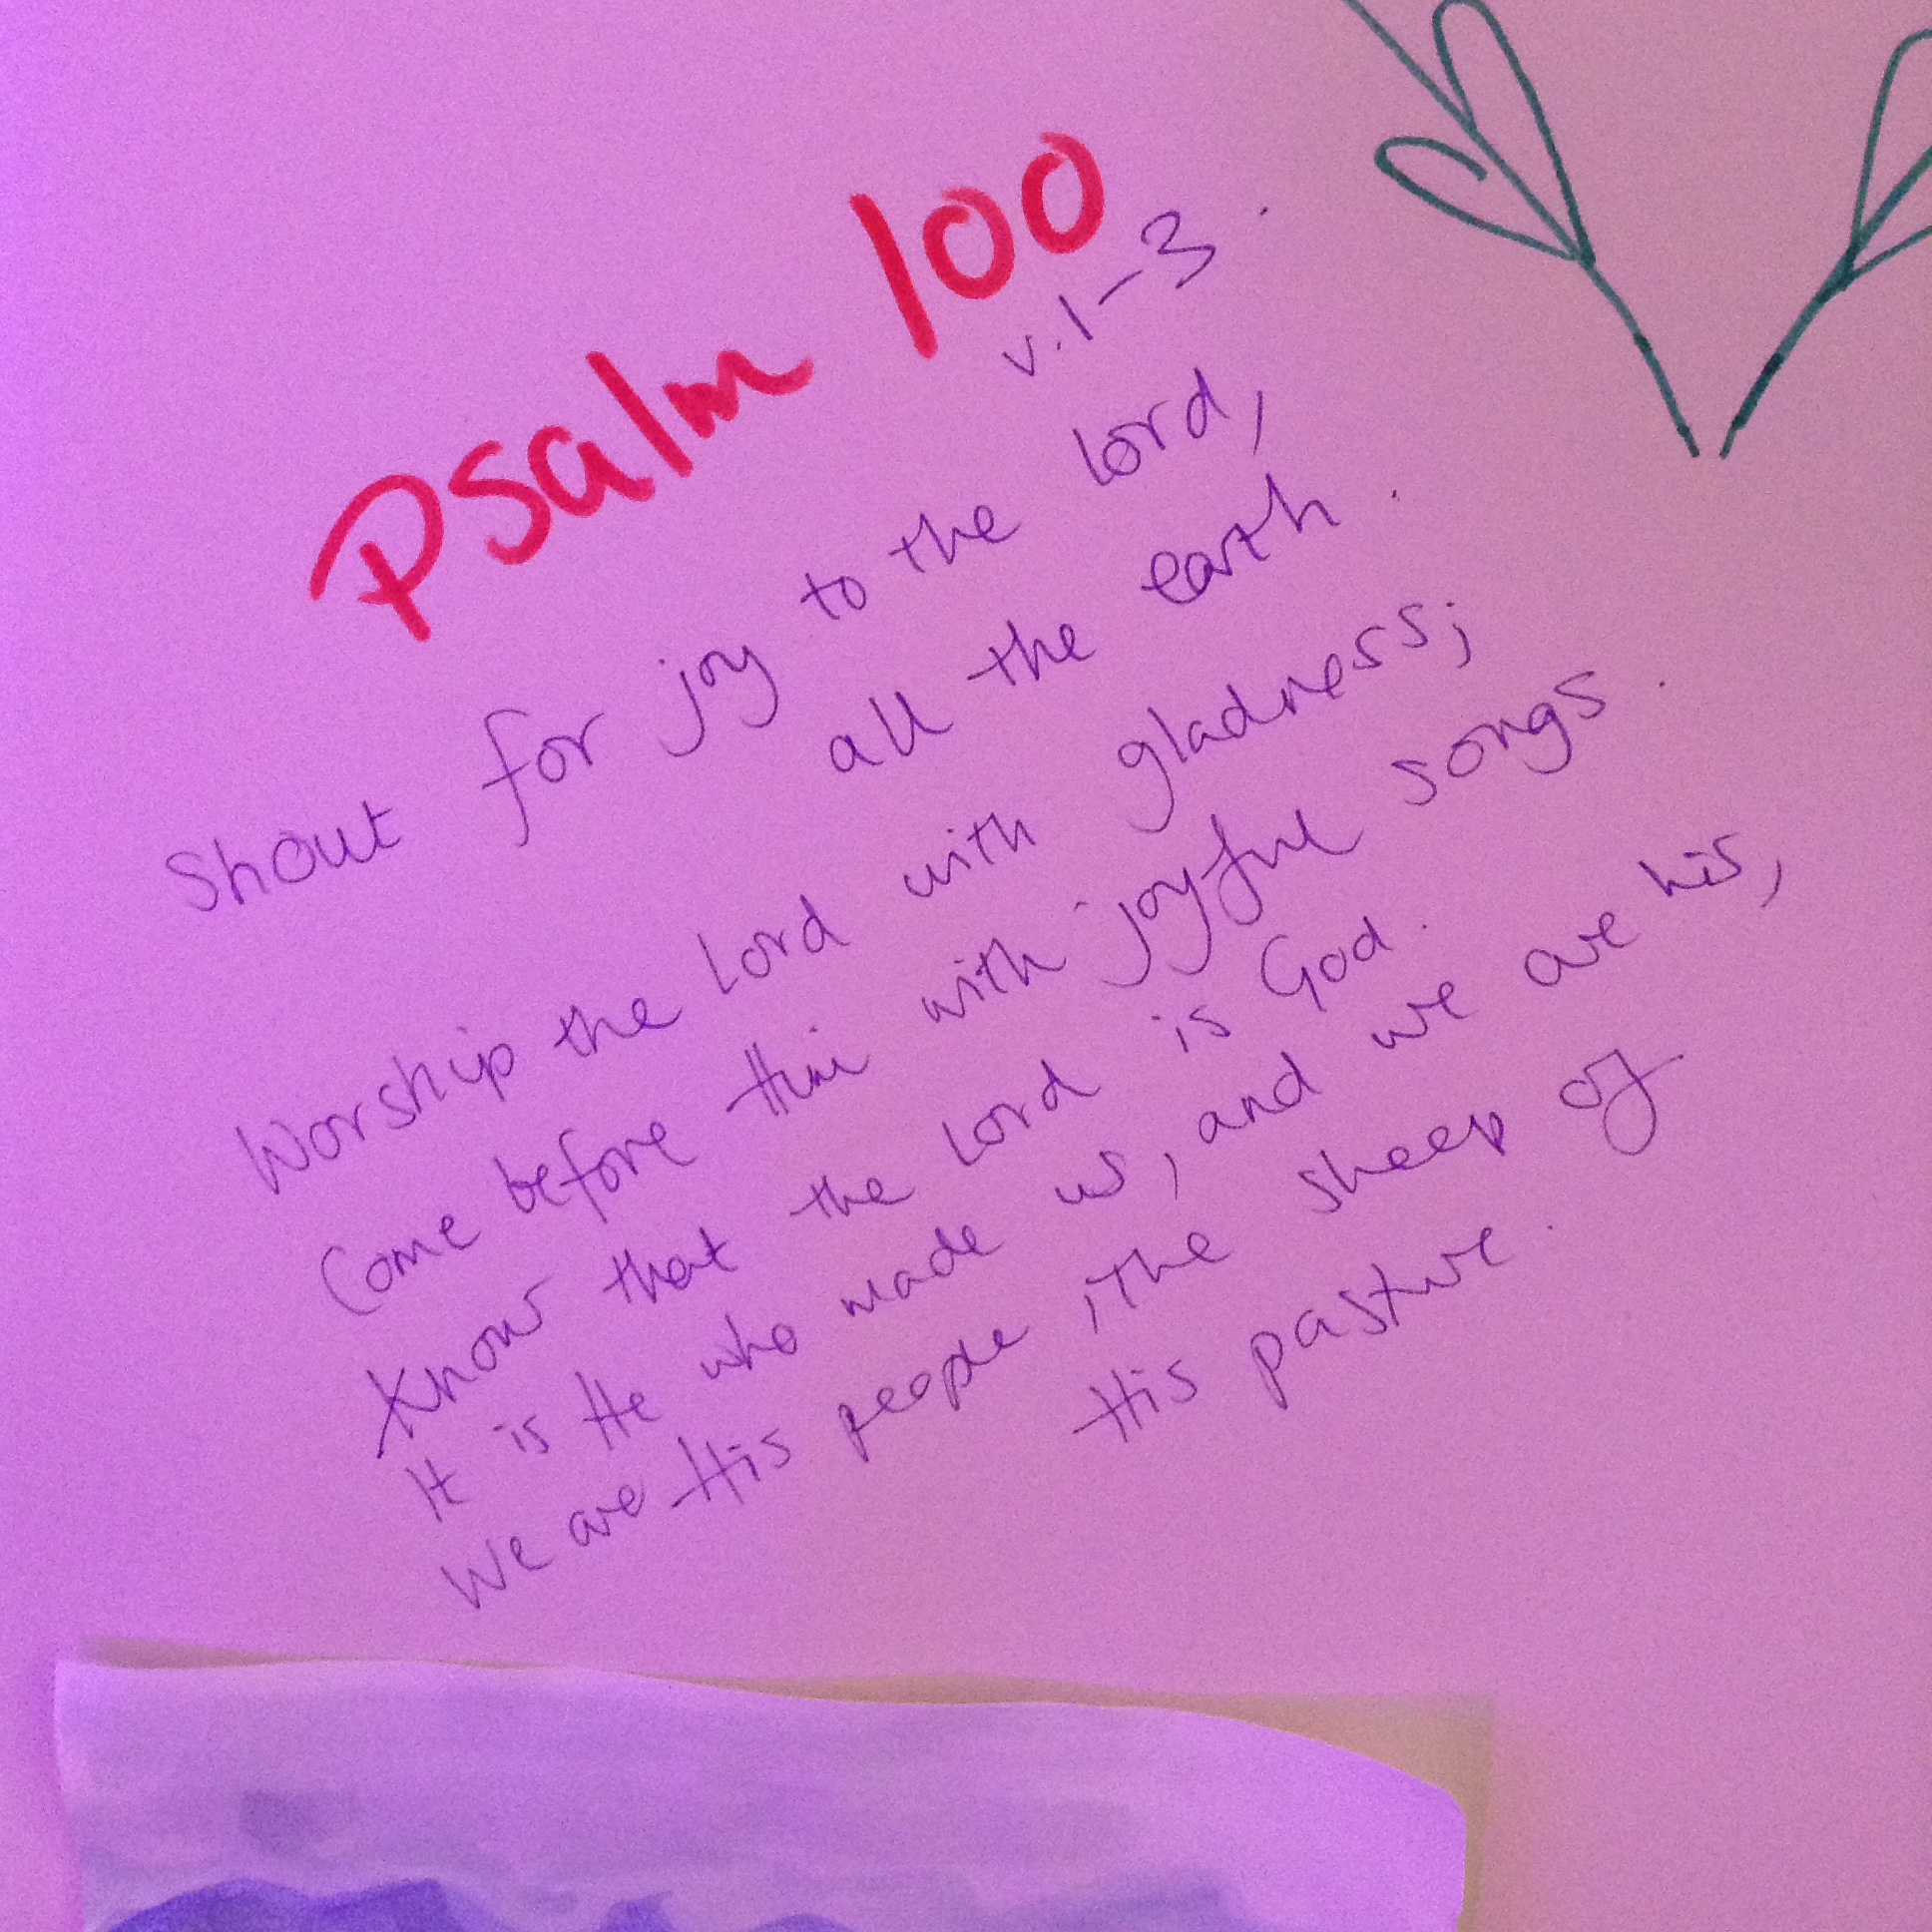 Psalm 100
v.1-3.
Shout for joy to the Lord,
all the earth.
Worship the Lord with gladness;
Come before Him with joyful songs.
Know that the Lord is God.
It is He who made us, and we are his,
We are His people, the sheep of
His pasture.